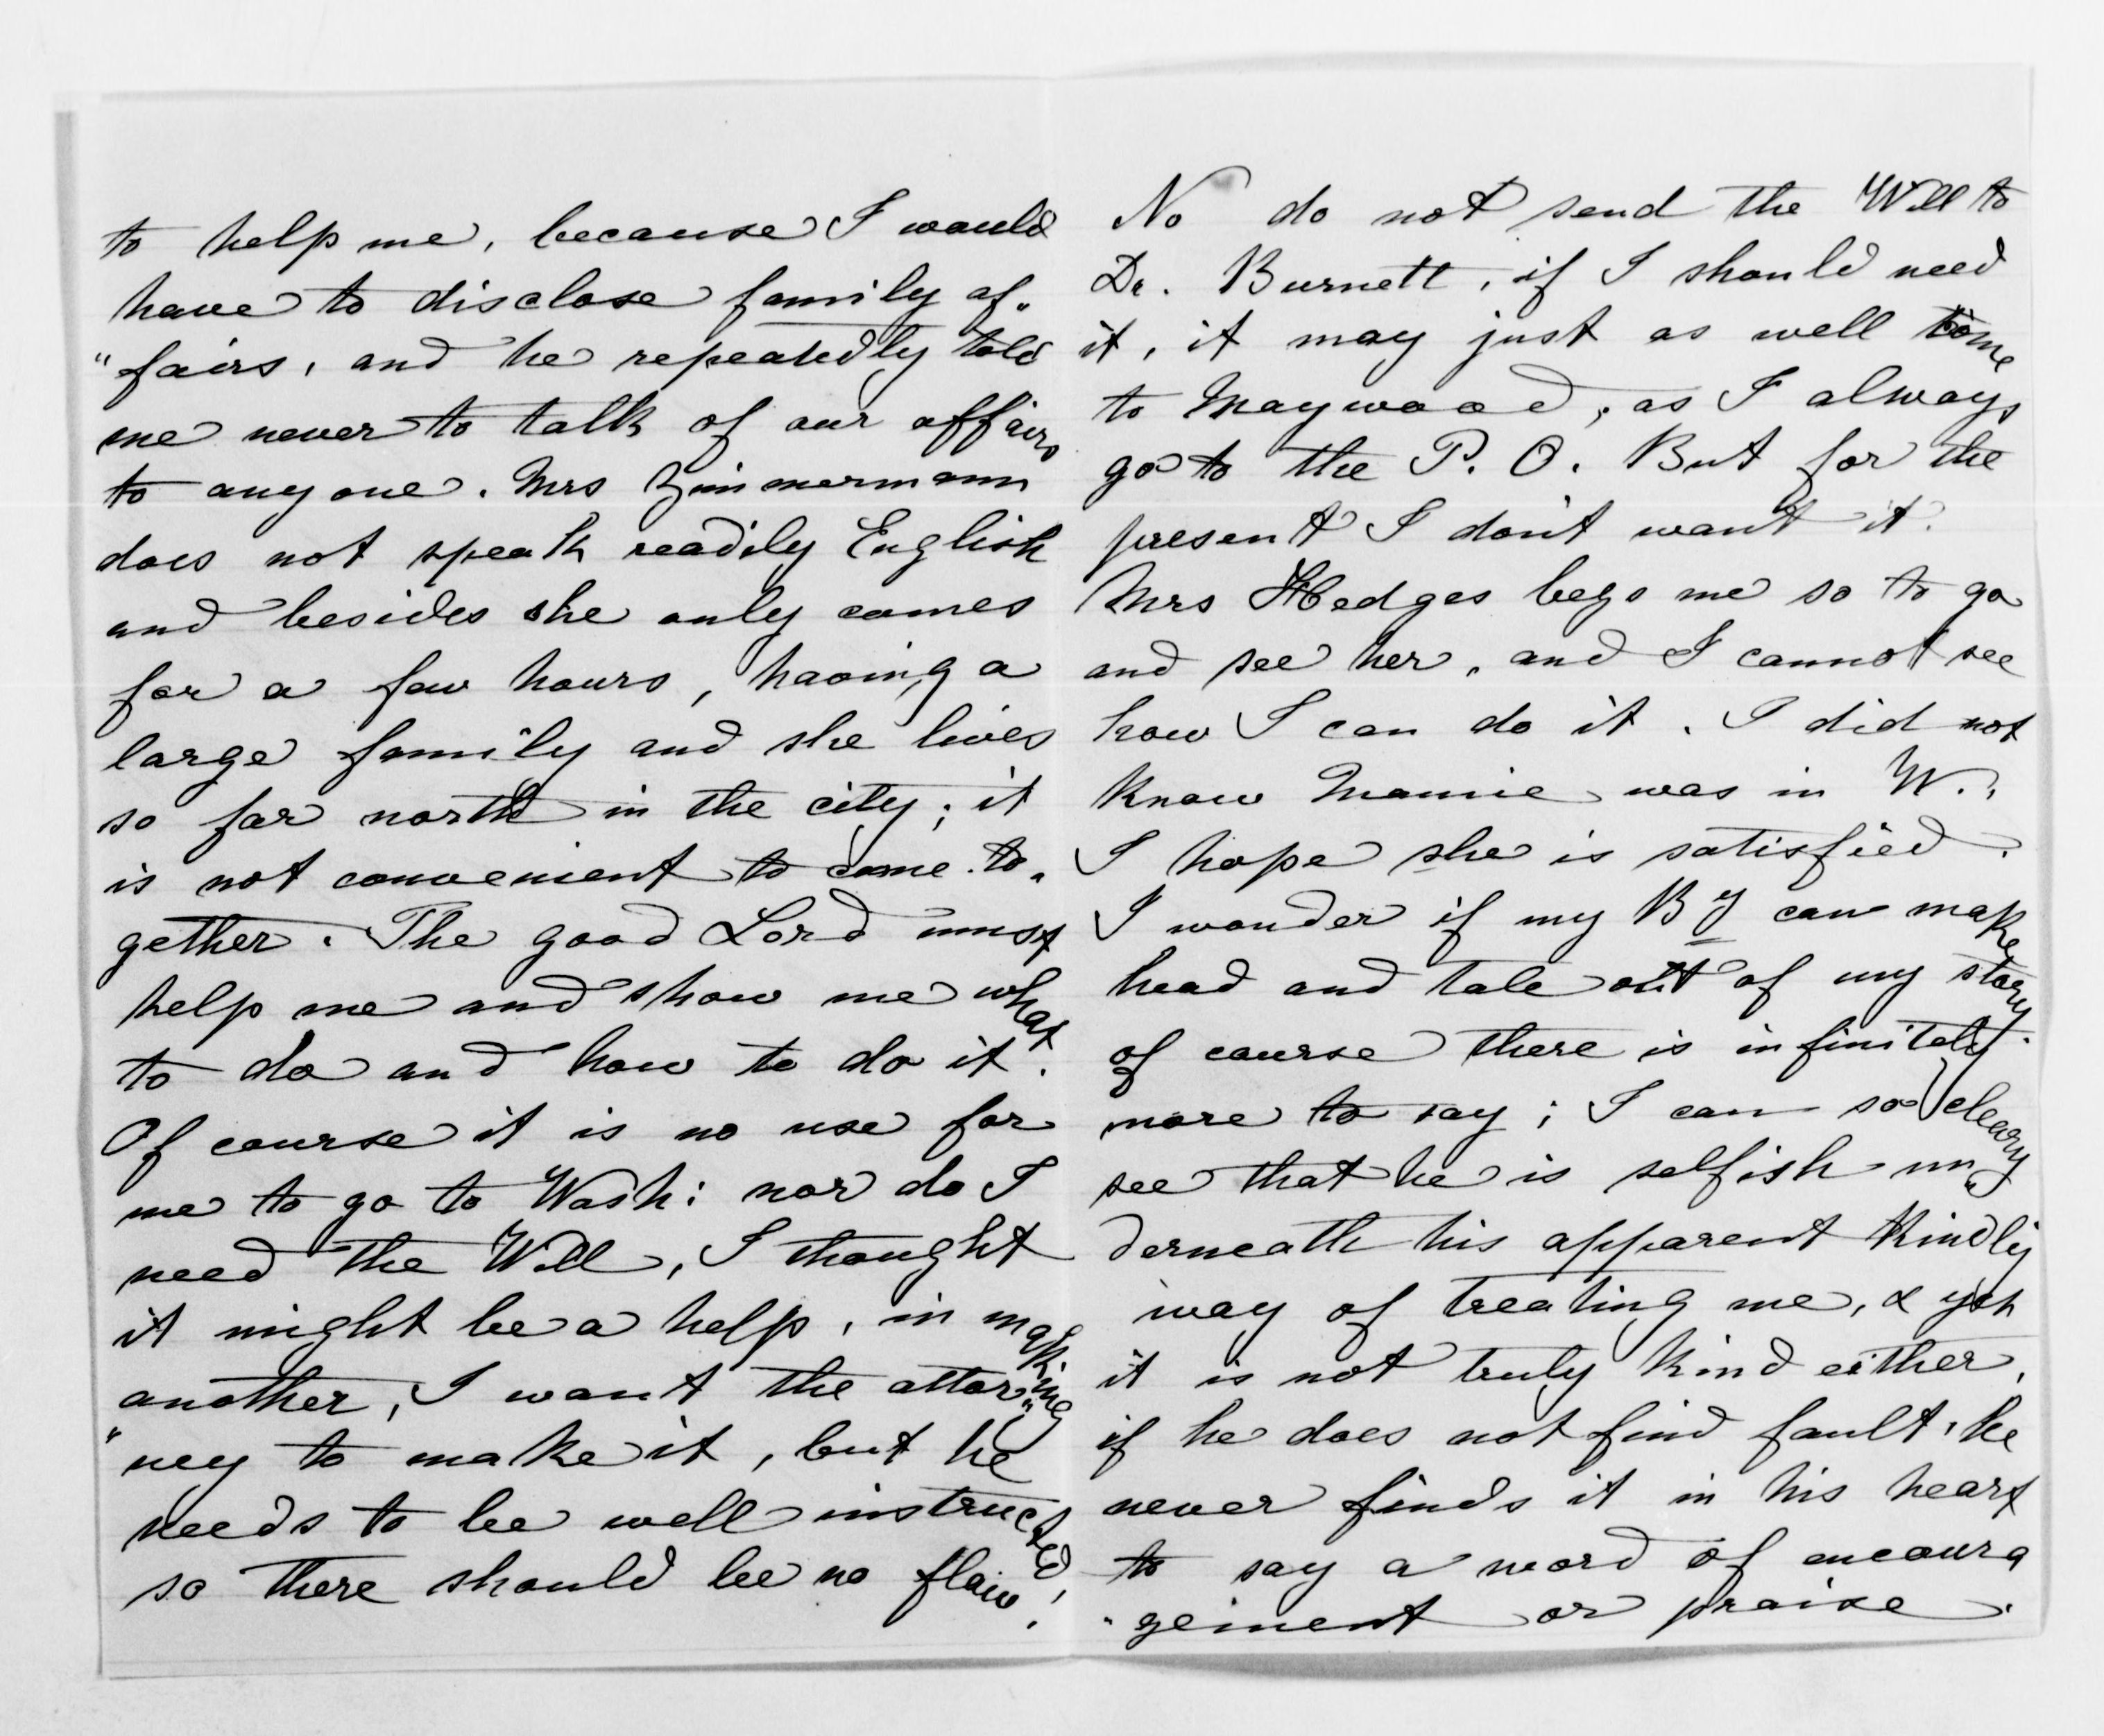 to help me, because I would
have to disclose family af„
"fairs, and he repeatedly told
me never to talk of our affairs
to any one. Mrs Zimmermann
does not speak readily English
and besides she only comes
for a few hours, having a
large family and she lives
so far north in the city; it
is not convenient to come to„
gether. The good Lord must
help me and show me what
to do and how to do it.
Of course it is no use for
me to go to Wash: nor do I
need the Will, I thought
it might be a help, in making
another, I want the attor„
"ney to make it, but he
needs to be well instructed,
so there should be no flaw!
No do not send the Will to
Dr. Burnett, if I should need
it, it may just as well come
to Maywood, as I always
go to the P. O. But for the
present I don't want it.
Mrs Hedges begs me so to go
and see her, and I cannot see
how I can do it. I did not
know Mamie was in W.,
I hope she is satisfied.
I wonder if my By can make
head and tale out of my story.
of course there is infinitely
more to say; I can so cleary
see that he is selfish un„
derneath his apparent kindly
way of treating me, & yet
it is not truly kind either,
if he does not find fault, he
never finds it in his heart
to say a word of encoura
"gement or praise.